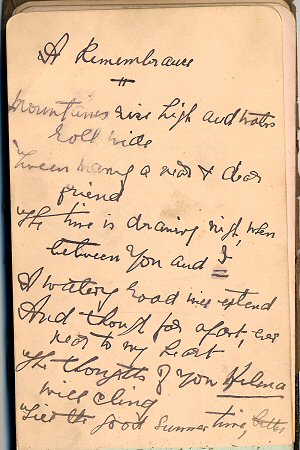 A Remembrance
Mountains rise high and waters
roll wide
'Tween many a near & dear
friend
The time is drawing nigh, when
between You and I
A watery road will extend
And though far apart, ever
near to my heart
The thoughts of You Helena
will cling
Till the good summer time,